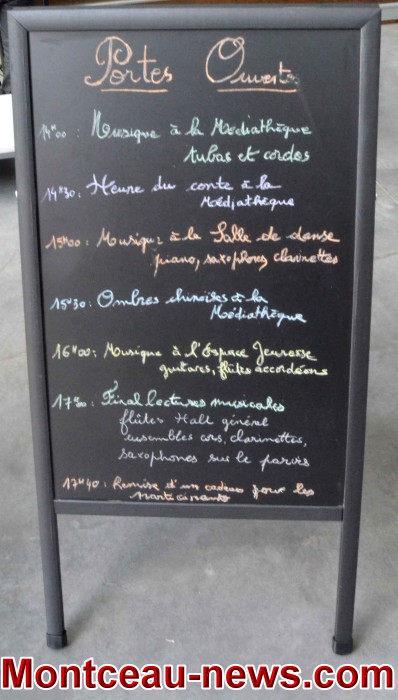 Portes Ouvertes
14H00: Musique à la Médiathèque
tubas et cordes
14H30: Heure du conte à la
Médiathèque
15H00: Musique à la Salle de danse
piano, saxophones clarinettes
15H30: Ombres chinoises à la
Médiathèque
16H00: Musique à l'Espace Jeunesse
guitares, flûtes accordéons
Final lectures musicales
flûtes Hall général
ensembles cors, clarinettes,
saxophones sur le parvis
17H40: Remise d'un cadeau pour les
Montceau-news.com